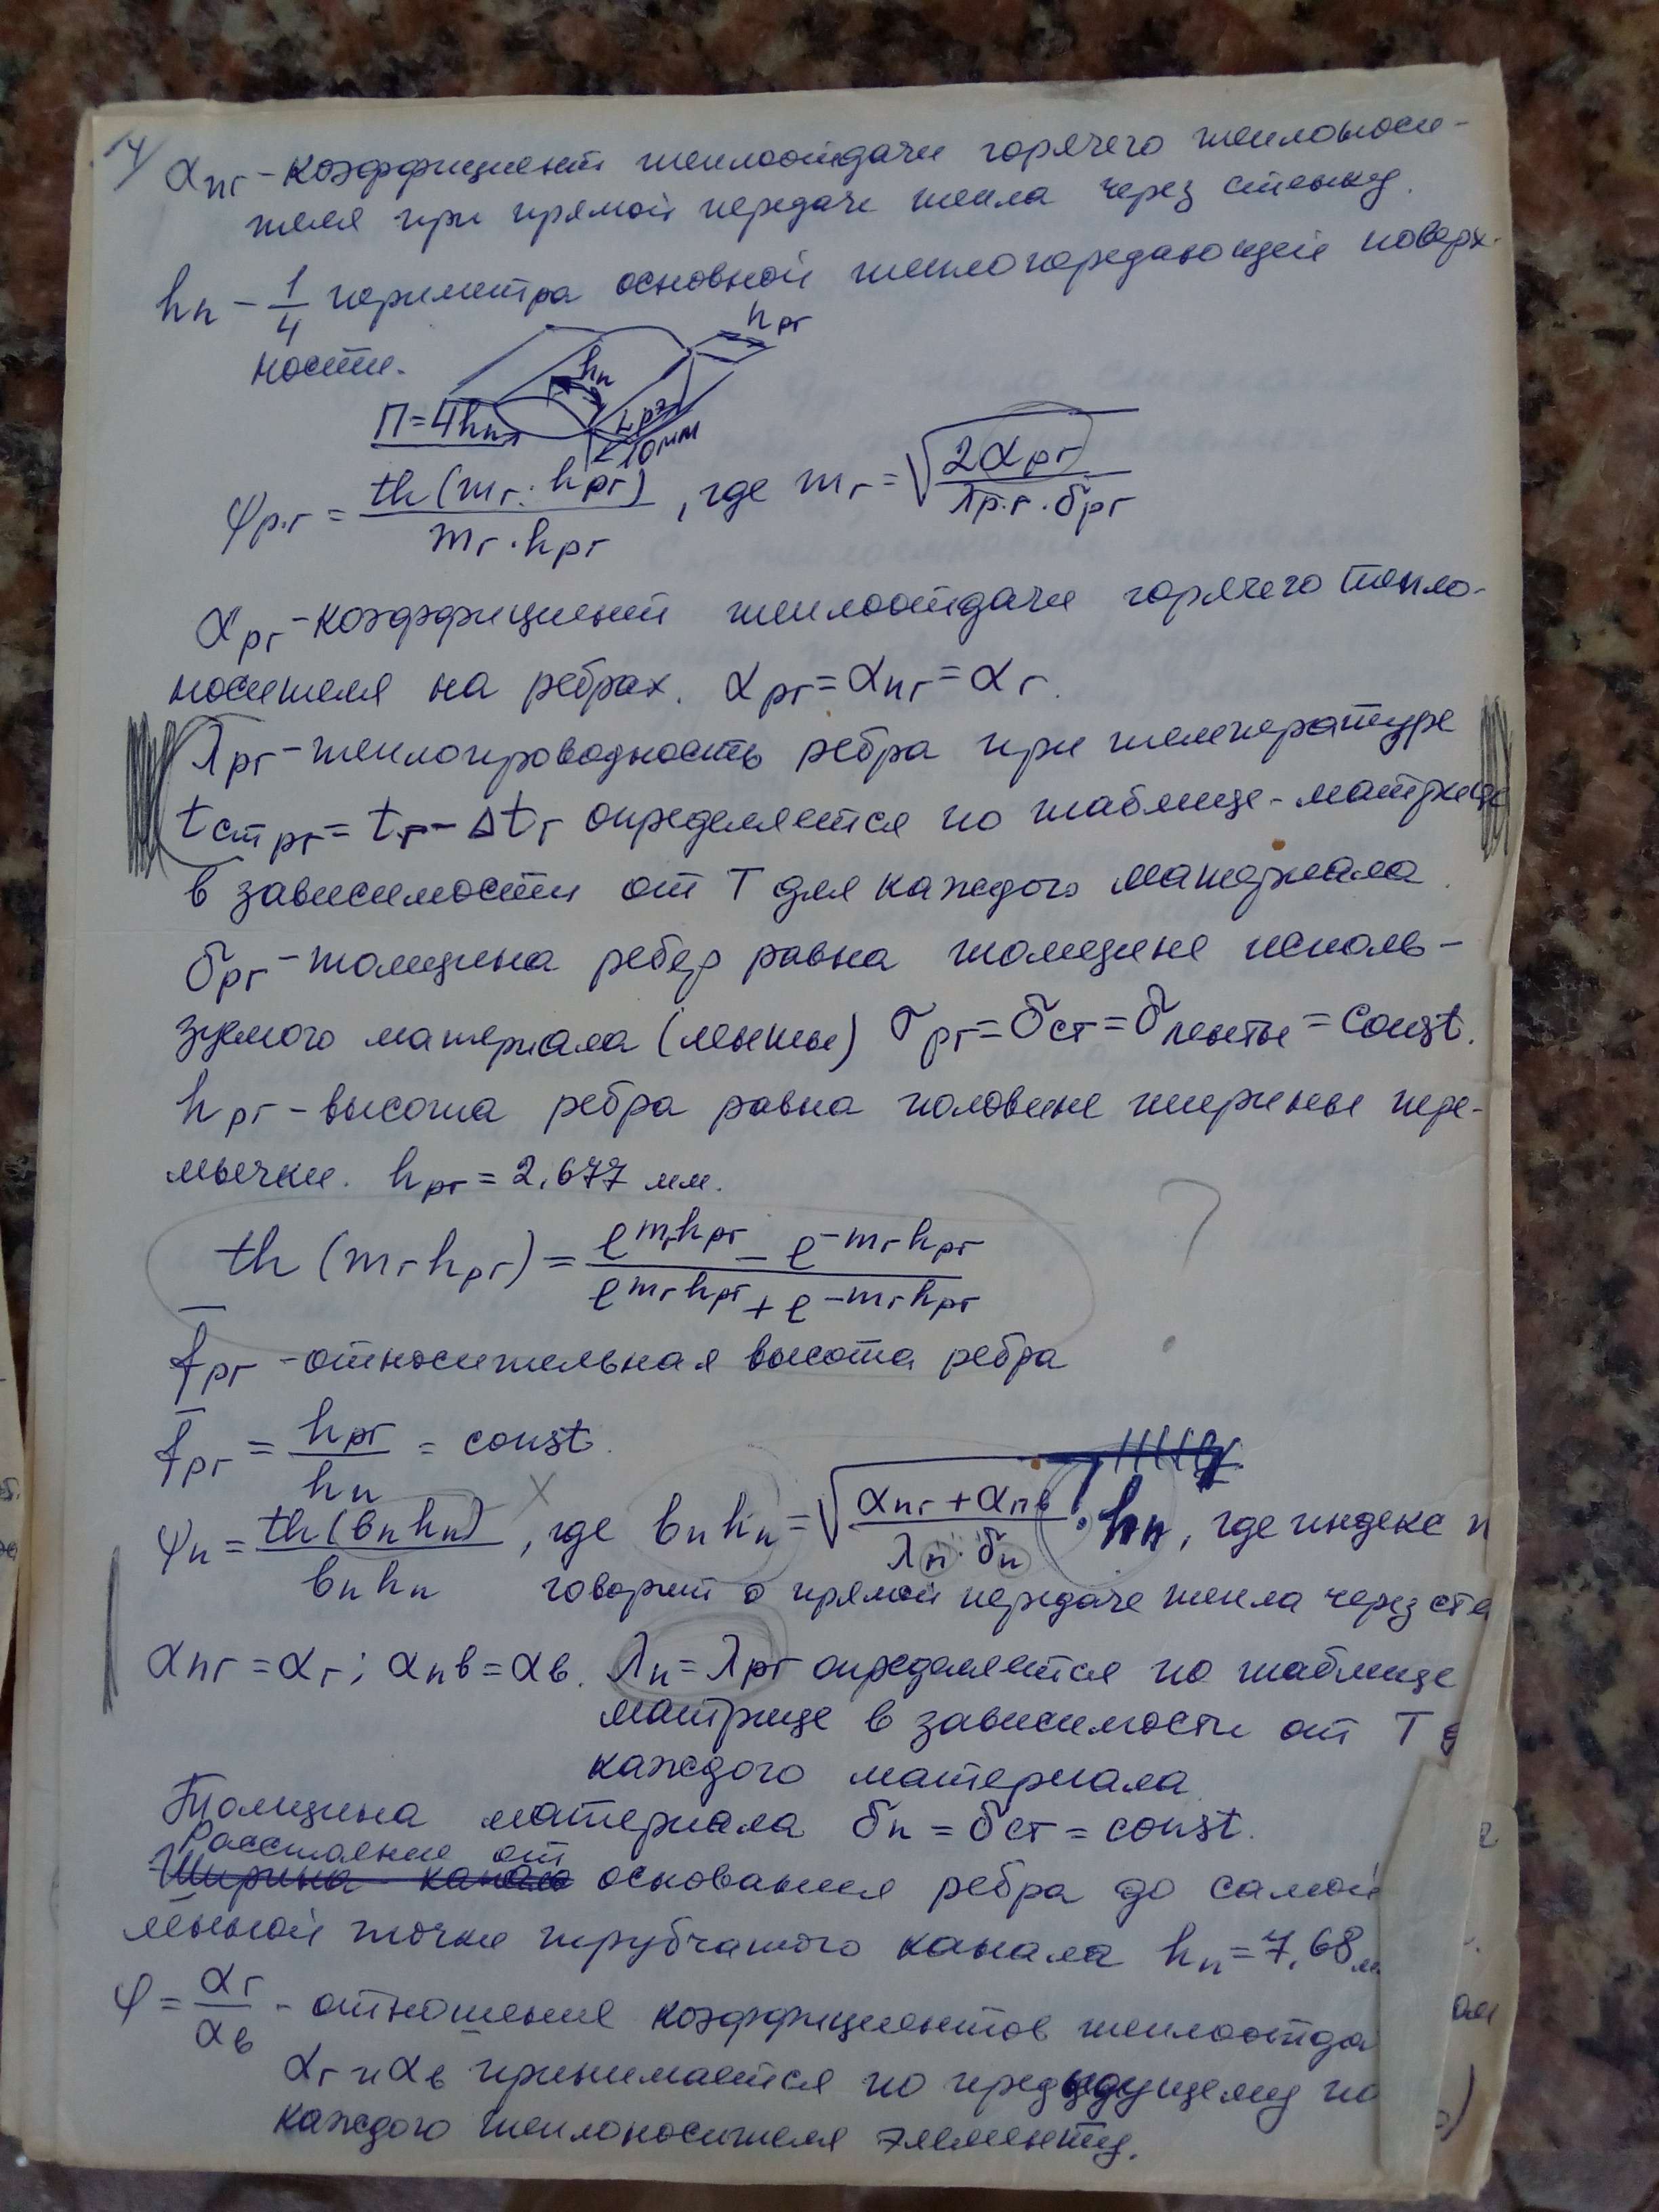 14
α_пг – коэффициент теплоотдачи горячего теплоноси-
теля при прямой передаче тепла через стенку.
h_п – 1/4 периметра основной теплопередающей поверх-
ности.
h_рг
h_п
П = 4h_п
L_рэ
10мм
φ_р.г = th(m_г · h_рг) / (m_г · h_рг), где m_г = √(2α_рг / (λ_р.г · δ_рг))
α_рг – коэффициент теплоотдачи горячего тепло-
носителя на ребрах. α_рг = α_пг = α_г.
λ_рг – теплопроводность ребра при температуре
t_ст рг = t_г – Δt_г определяется по таблице-матрице
в зависимости от T для каждого материала.
δ_рг – толщина ребер равна толщине исполь-
зуемого материала (ленты) δ_рг = δ_ст = δ_ленты = const.
h_рг – высота ребра равна половине ширины пере-
мычки. h_рг = 2,677 мм.
th (m_г h_рг) = (e^(m_г h_рг) – e^(–m_г h_рг)) / (e^(m_г h_рг) + e^(–m_г h_рг))
?
f̄_рг – относительная высота ребра
f̄_рг = h_рг / h_п = const.
φ_п = th(b_п h_п) / (b_п h_п), где b_п h_п = √((α_пг + α_пв) / (λ_п · δ_п)) · h_п, где индекс п
говорит о прямой передаче тепла через сте
α_пг = α_г; α_пв = α_в. λ_п = λ_рг определяется по таблице
матрице в зависимости от T
каждого материала.
Толщина материала δ_п = δ_ст = const.
Расстояние от
Ширина канала основания ребра до самой
льной точки трубчатого канала h_п = 7,68 м
φ = α_г / α_в – отношение коэффициентов теплоотда
α_г и α_в принимается по предыдущему по
каждого теплоносителя элементу.